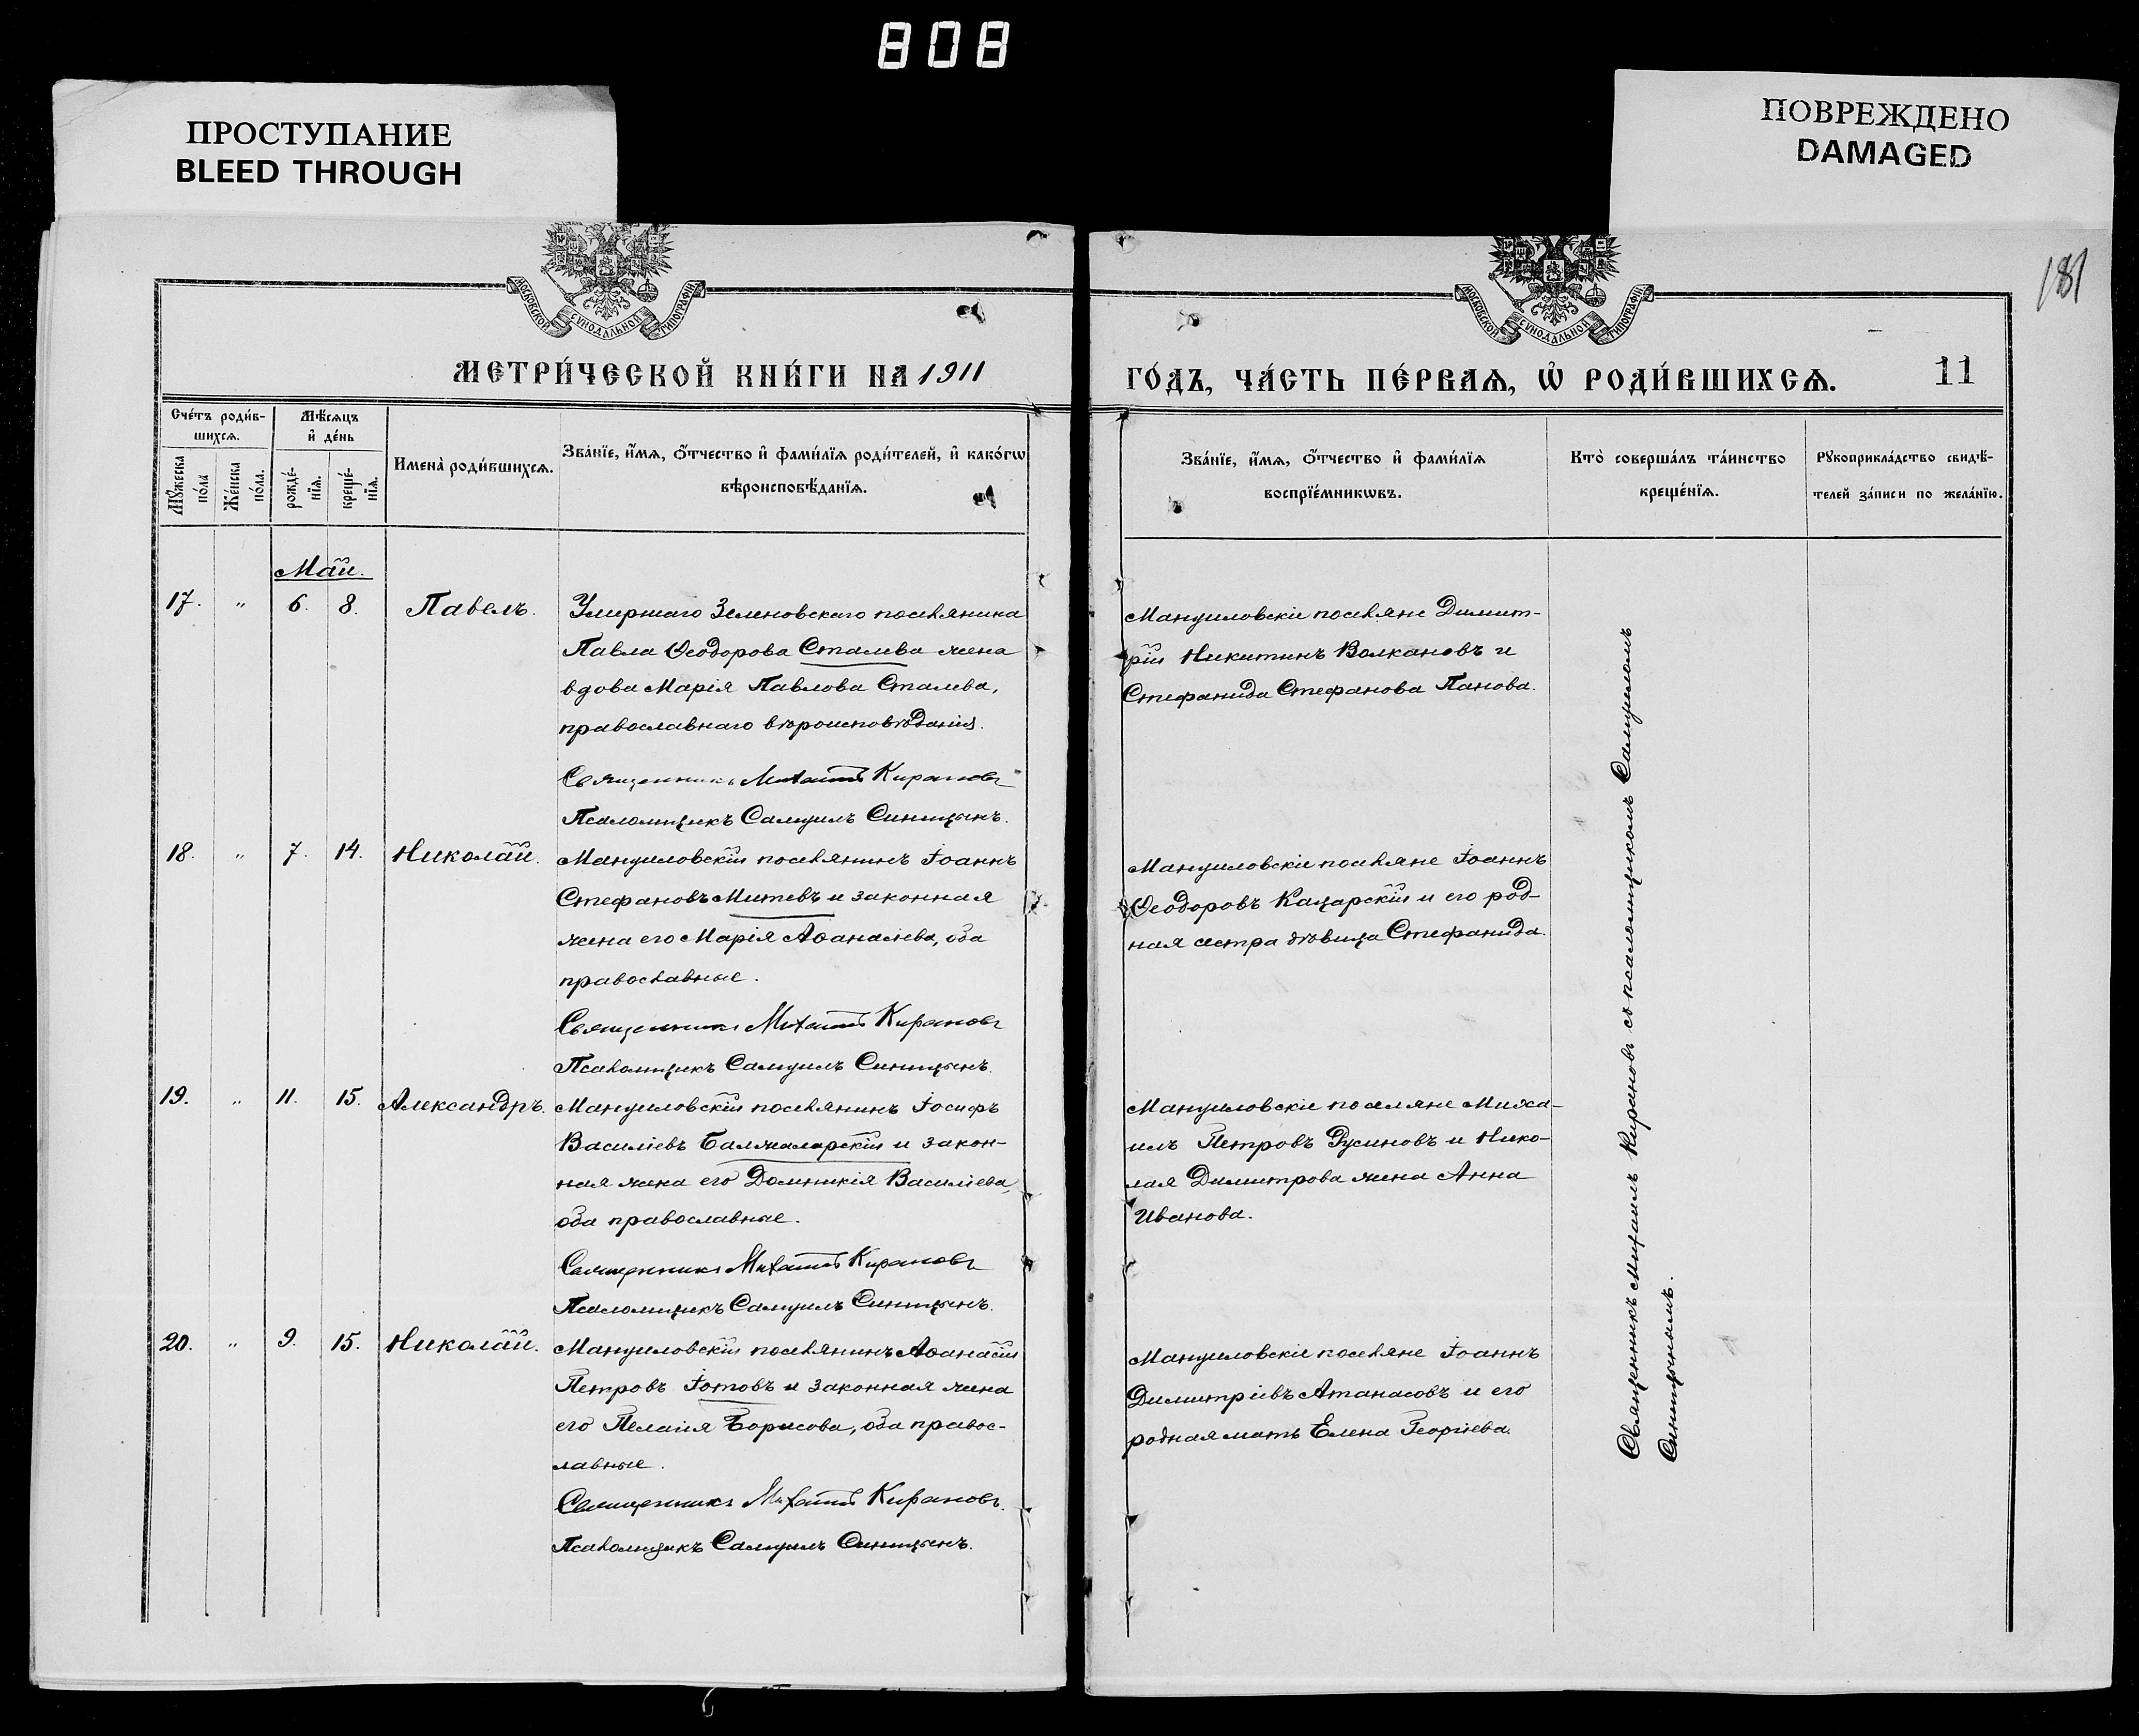 808
ПРОСТУПАНИЕ
BLEED THROUGH
ПОВРЕЖДЕНО
DAMAGED
181
МОСКОВСКОЙ СѴНОДАЛЬНОЙ ТИПОГРАФІИ
МОСКОВСКОЙ СѴНОДАЛЬНОЙ ТИПОГРАФІИ
МЕТРИ́ЧЕСКОЙ КНИ́ГИ НА 1911
ГО́ДЪ, ЧА́СТЬ ПЕ́РВАѦ, Ѡ҆ РОДИ́ВШИХСѦ. 11
Сче́тъ роди́в-
шихсѧ.
Мꙋ́жеска
по́ла
Же́нска
по́ла.
Мѣ́сѧцъ
и҆ де́нь
рожде́-
нїѧ.
креще́-
нїѧ.
Имена̀ роди́вшихсѧ.
Зва́нїе, и҆́мѧ, ѻ҆́тчество и҆ фами́лїѧ роди́телей, и҆ како́гѡ
вѣроисповѣ́данїѧ.
Зва́нїе, и҆́мѧ, ѻ҆́тчество и҆ фами́лїѧ
воспрїе́мникѡвъ.
Кто̀ соверша́лъ та́инство
креще́нїѧ.
Рꙋкоприкла́дство свидѣ́-
телей за́писи по жела́нїю.
Май.
17. " 6. 8. Павелъ.
Умершаго Зеленовскаго поселянина
Павла Ѳеодорова Сталева жена
вдова Марія Павлова Сталева,
православнаго вѣроисповѣданія.
Священникъ Михаилъ Кирановъ
Псаломщикъ Самуилъ Синицынъ.
Мануиловскіе поселяне Димит-
рій Никитинъ Волкановъ и
Стефанида Стефанова Панова.
18. " 7. 14. Николай.
Мануиловскій поселянинъ Іоаннъ
Стефановъ Митевъ и законная
жена его Марія Аѳанасіева, оба
православные.
Священникъ Михаилъ Кирановъ
Псаломщикъ Самуилъ Синицынъ.
Мануиловскіе поселяне Іоаннъ
Ѳеодоровъ Кацарскій и его род-
ная сестра дѣвица Стефанида.
19. " 11. 15. Александръ.
Мануиловскій поселянинъ Іосифъ
Василіевъ Балжаларскій и закон-
ная жена его Домникія Василіева,
оба православные.
Священникъ Михаилъ Кирановъ
Псаломщикъ Самуилъ Синицынъ.
Мануиловскіе поселяне Миха-
илъ Петровъ Русиновъ и Нико-
лая Димитрова жена Анна
Иванова.
20. " 9. 15. Николай.
Мануиловскій поселянинъ Аѳанасій
Петровъ Іотовъ и законная жена
его Пелагія Борисова, оба правос-
лавные.
Священникъ Михаилъ Кирановъ.
Псаломщикъ Самуилъ Синицынъ.
Мануиловскіе поселяне Іоаннъ
Димитріевъ Атанасовъ и его
родная мать Елена Георгіева.
Священникъ Михаилъ Кирановъ съ псаломщикомъ Самуиломъ
Синицынымъ.